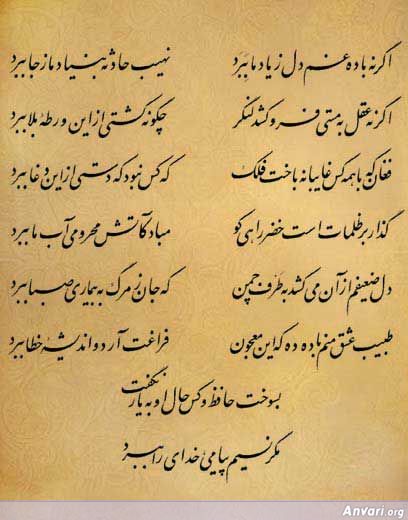 اگر نه باده غم دل ز یاد ما ببرد نهیب حادثه بنیاد ما ز جا ببرد
اگر نه عقل به مستی فرو کشد لنگر چگونه کشتی از این ورطهٔ بلا ببرد
فغان که با همه کس غایبانه باخت فلک که کس نبود که دستی از این دغا ببرد
گذار بر ظلمات است خضر راهی کو مباد کآتش محرومی آب ما ببرد
دل ضعیفم از آن می کشد به طرف چمن که جان ز مرگ به بیماری صبا ببرد
طبیب عشق منم باده ده که این معجون فراغت آرد و اندیشهٔ خطا ببرد
بسوخت حافظ و کس حال او به یار نگفت
مگر نسیم پیامی خدای را ببرد
Anvari.org